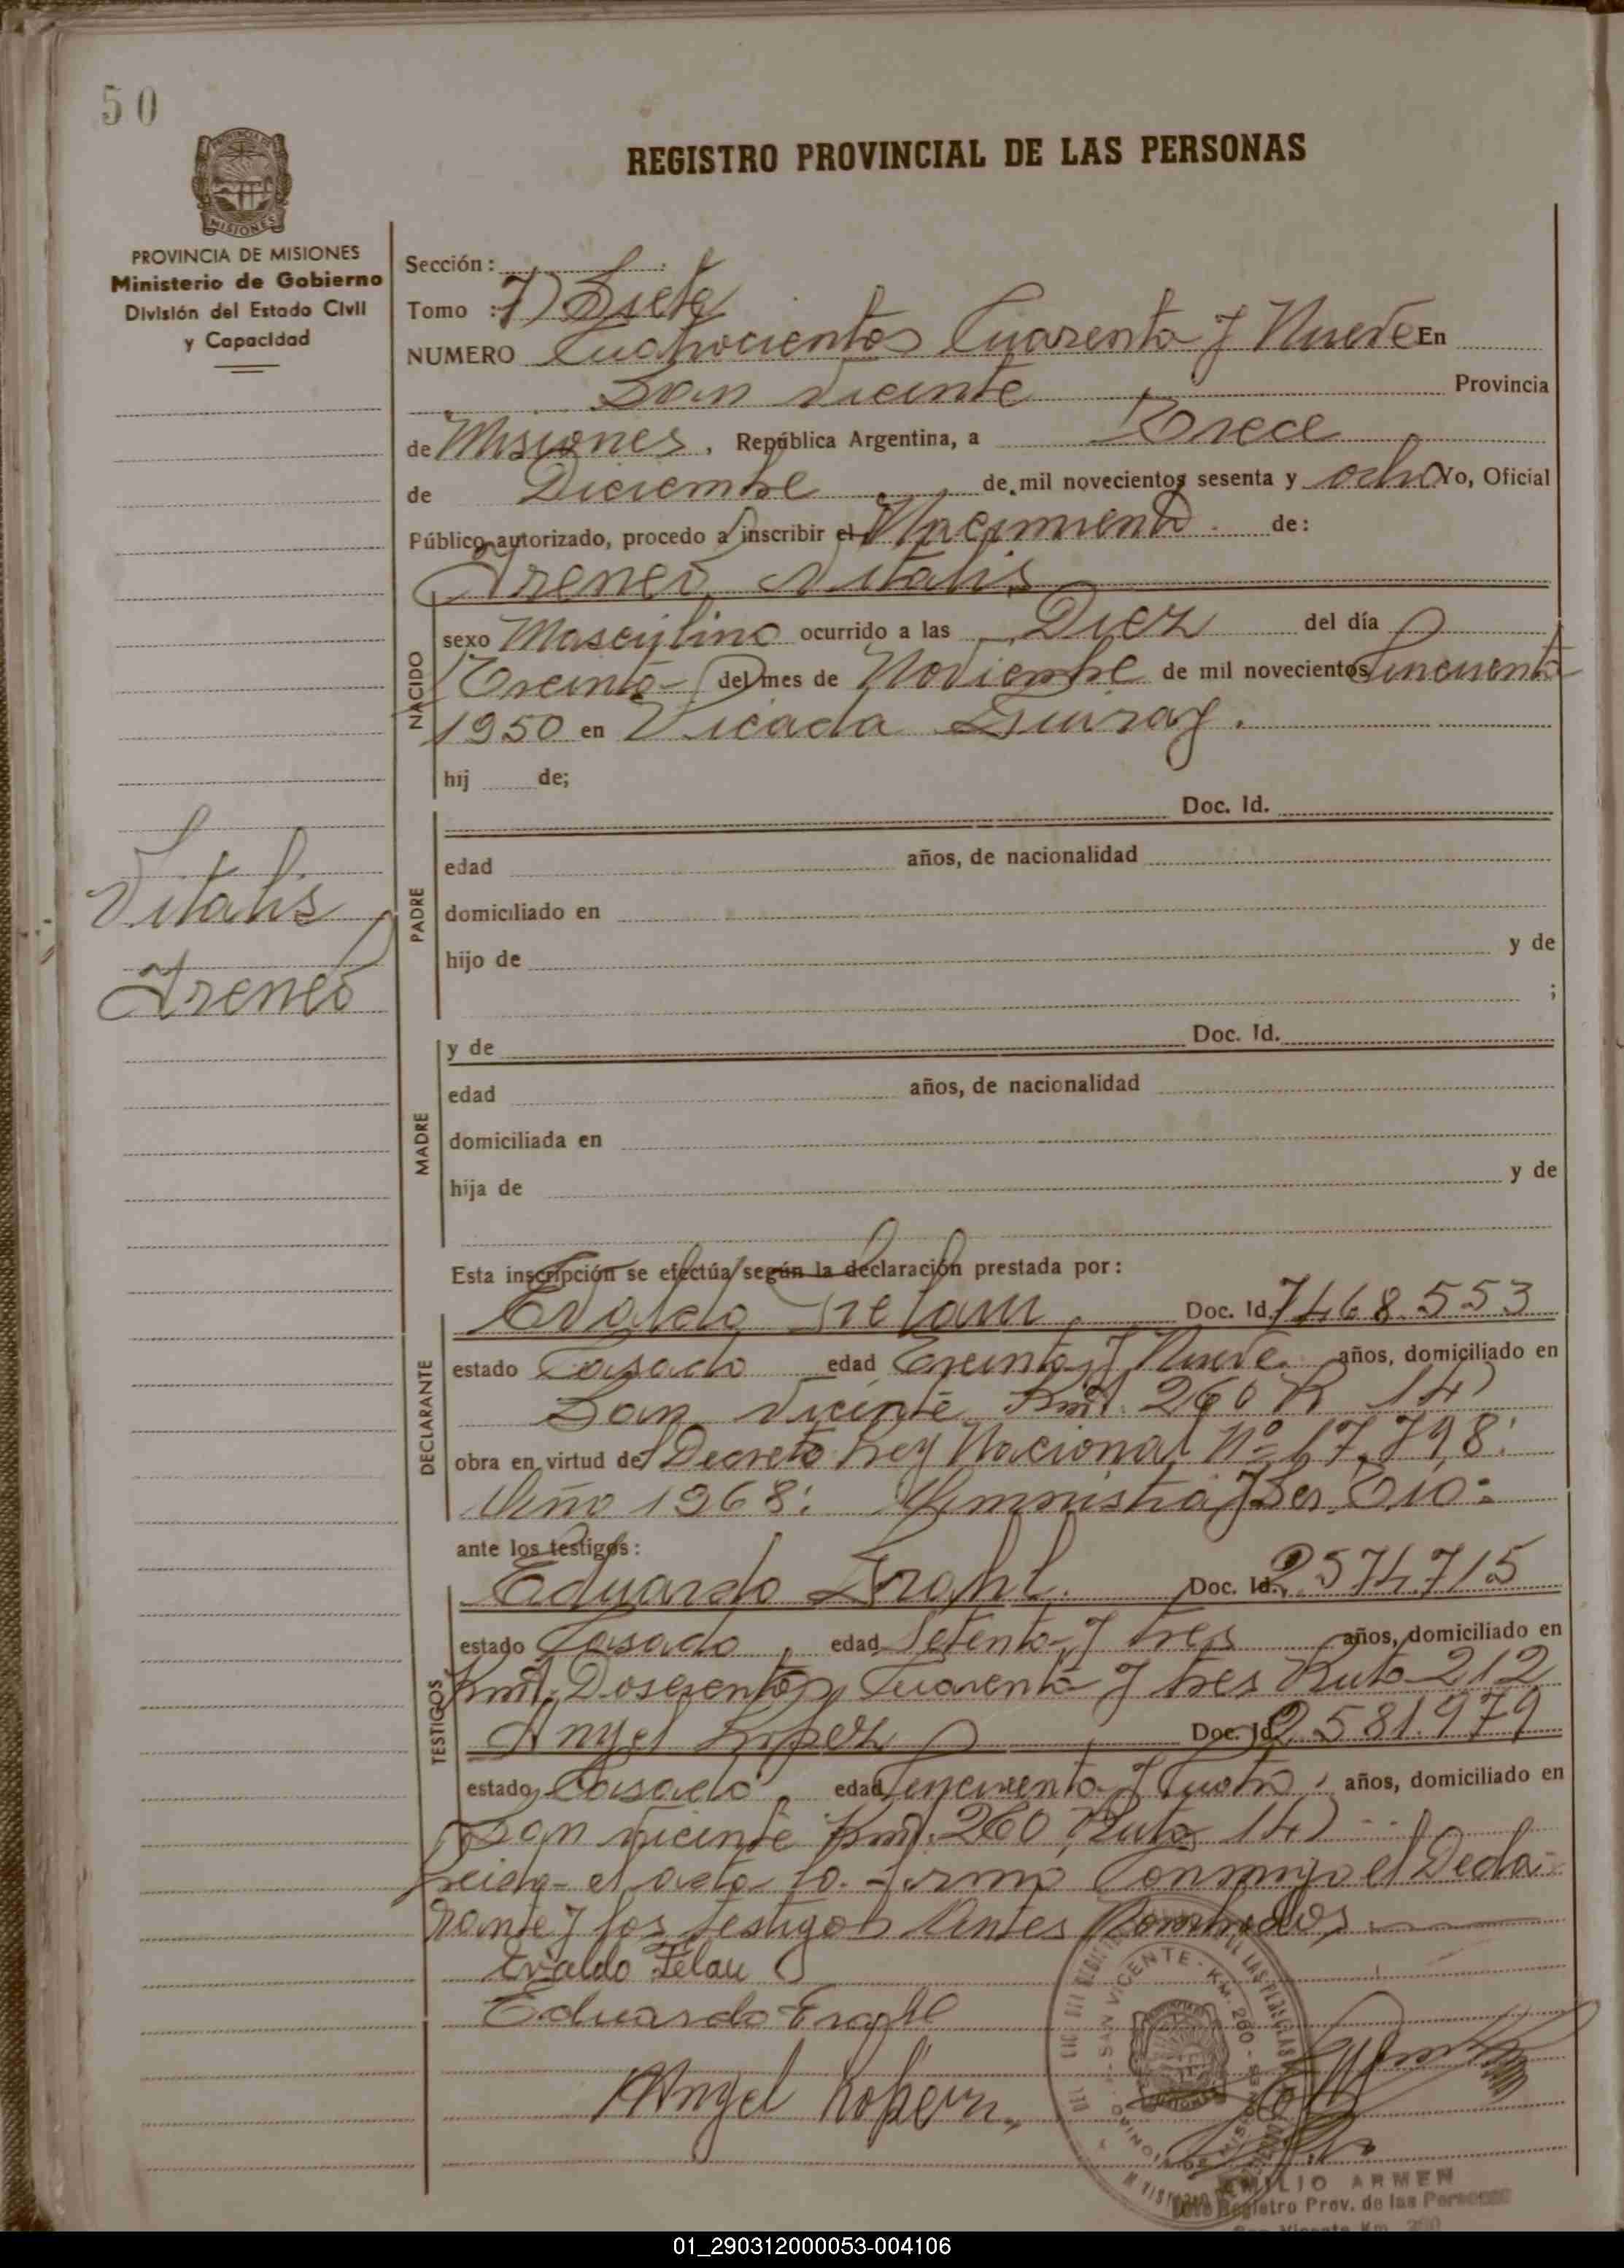 50
PROVINCIA DE MISIONES
Ministerio de Gobierno
División del Estado Civil
y Capacidad
REGISTRO PROVINCIAL DE LAS PERSONAS
Sección:
Tomo : 7) Siete
NUMERO Cuatrocientos Cuarenta y Nueve En
San Vicente Provincia
de Misiones, República Argentina, a Trece
de Diciembre de mil novecientos sesenta y ocho Yo, Oficial
Público autorizado, procedo a inscribir el Nacimiento de:
Ireneo Vitalis
NACIDO
sexo Masculino ocurrido a las Diez del día
Treinta del mes de Noviembre de mil novecientos Cincuenta
1950 en Picada
hij de;
Vitalis
Ireneo
PADRE
Doc. Id.
edad años, de nacionalidad
domiciliado en
hijo de y de
;
MADRE
y de Doc. Id.
edad años, de nacionalidad
domiciliada en
hija de y de
Esta inscripción se efectúa según la declaración prestada por:
DECLARANTE
Evaldo Doc. Id. 7468.553
estado Casado edad Treinta y Nueve años, domiciliado en
San Vicente Kmt. 260 R 14)
obra en virtud de Decreto Ley Nacional Nº 17.798:
Año 1968:
ante los testigos:
TESTIGOS
Eduardo Doc. Id. 2574715
estado Casado, edad Setenta y tres años, domiciliado en
Kmt. Doscientos Cuarenta y tres Ruta 212
Angel Lopez Doc. Id. 2.581.979
estado Casado, edad Cincuenta y Cuatro años, domiciliado en
San Vicente Kmt. 260 Ruta 14)
Leida el acta la firma Conmigo el Decla-
rante y los testigos Antes Nombrados.
Evaldo Felau
Eduardo
Angel
SAN VICENTE - KM. 260 - MISIONES
EMILIO ARMEN
Registro Prov. de las Personas
San Vicente Km. 260
01_290312000053-004106